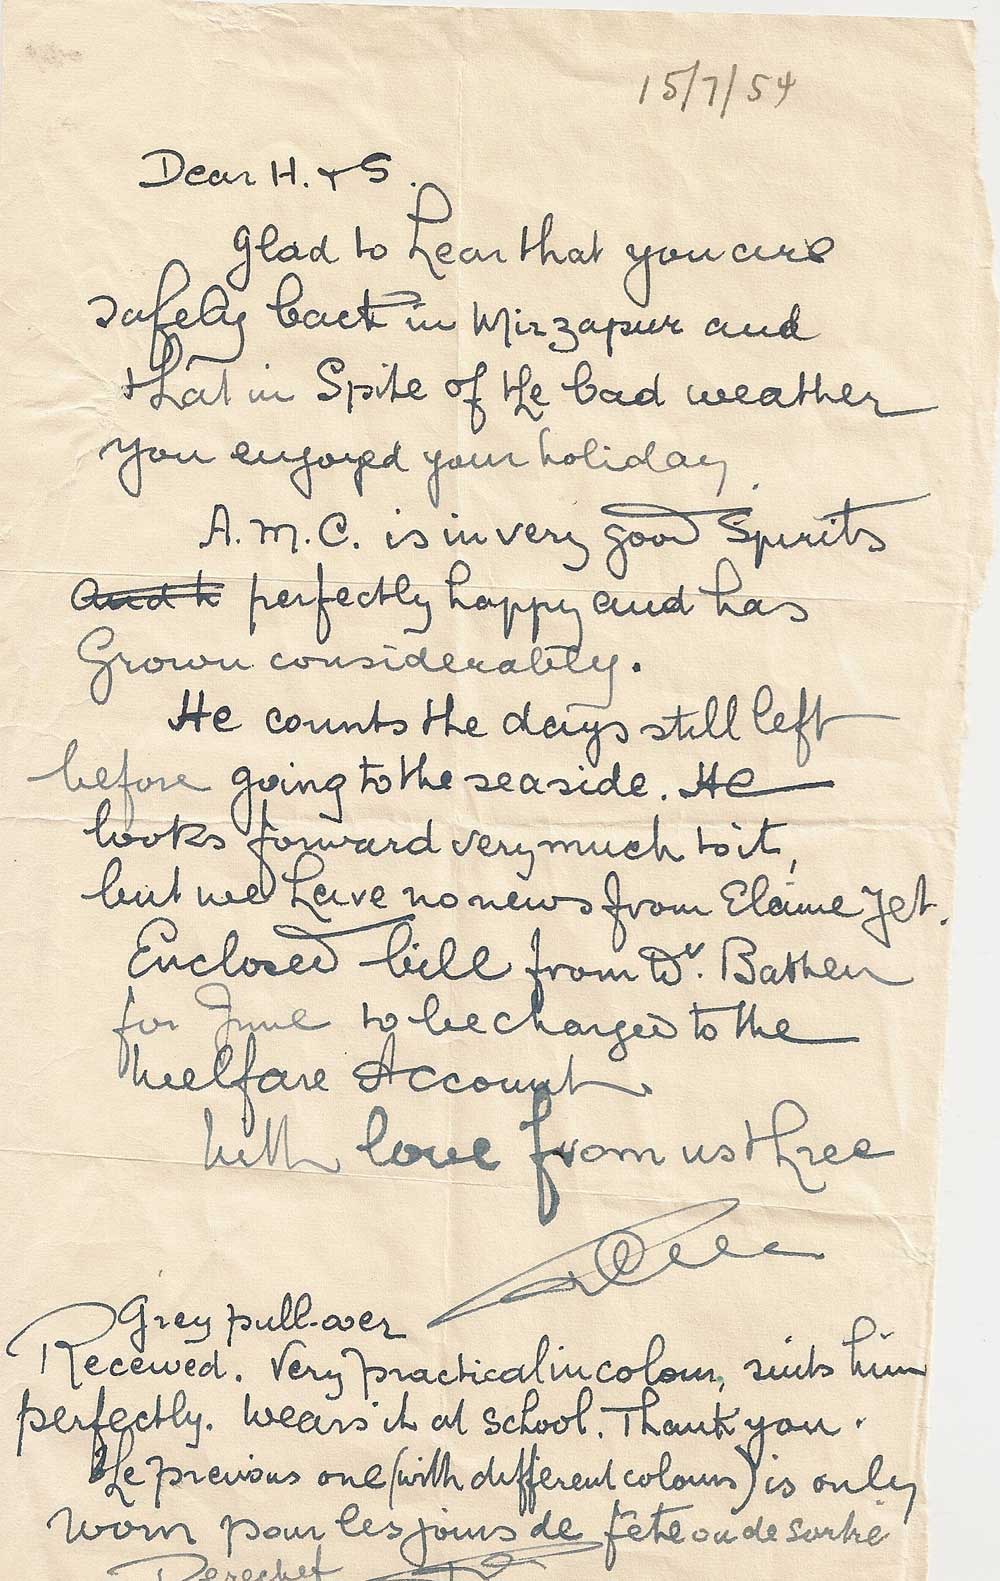 15/7/54
Dear H. + S.
Glad to hear that you are
safely back in Mirzapur and
that in Spite of the bad weather
you enjoyed your holiday.
A.M.C. is in very good Spirits
and h perfectly happy and has
Grown considerably.
He counts the days still left
before going to the seaside. He
looks forward very much to it,
but we have no news from Elaine yet.
Enclosed bill from Dr. Bathen
for June to be charged to the
Welfare Account
With love from us three
Grey pull-over
Received. Very practical in colour, suits him
perfectly. Wears it at School. Thank you.
The previous one (with different colours) is only
worn pour les jours de fête ou de sortie
Derechef